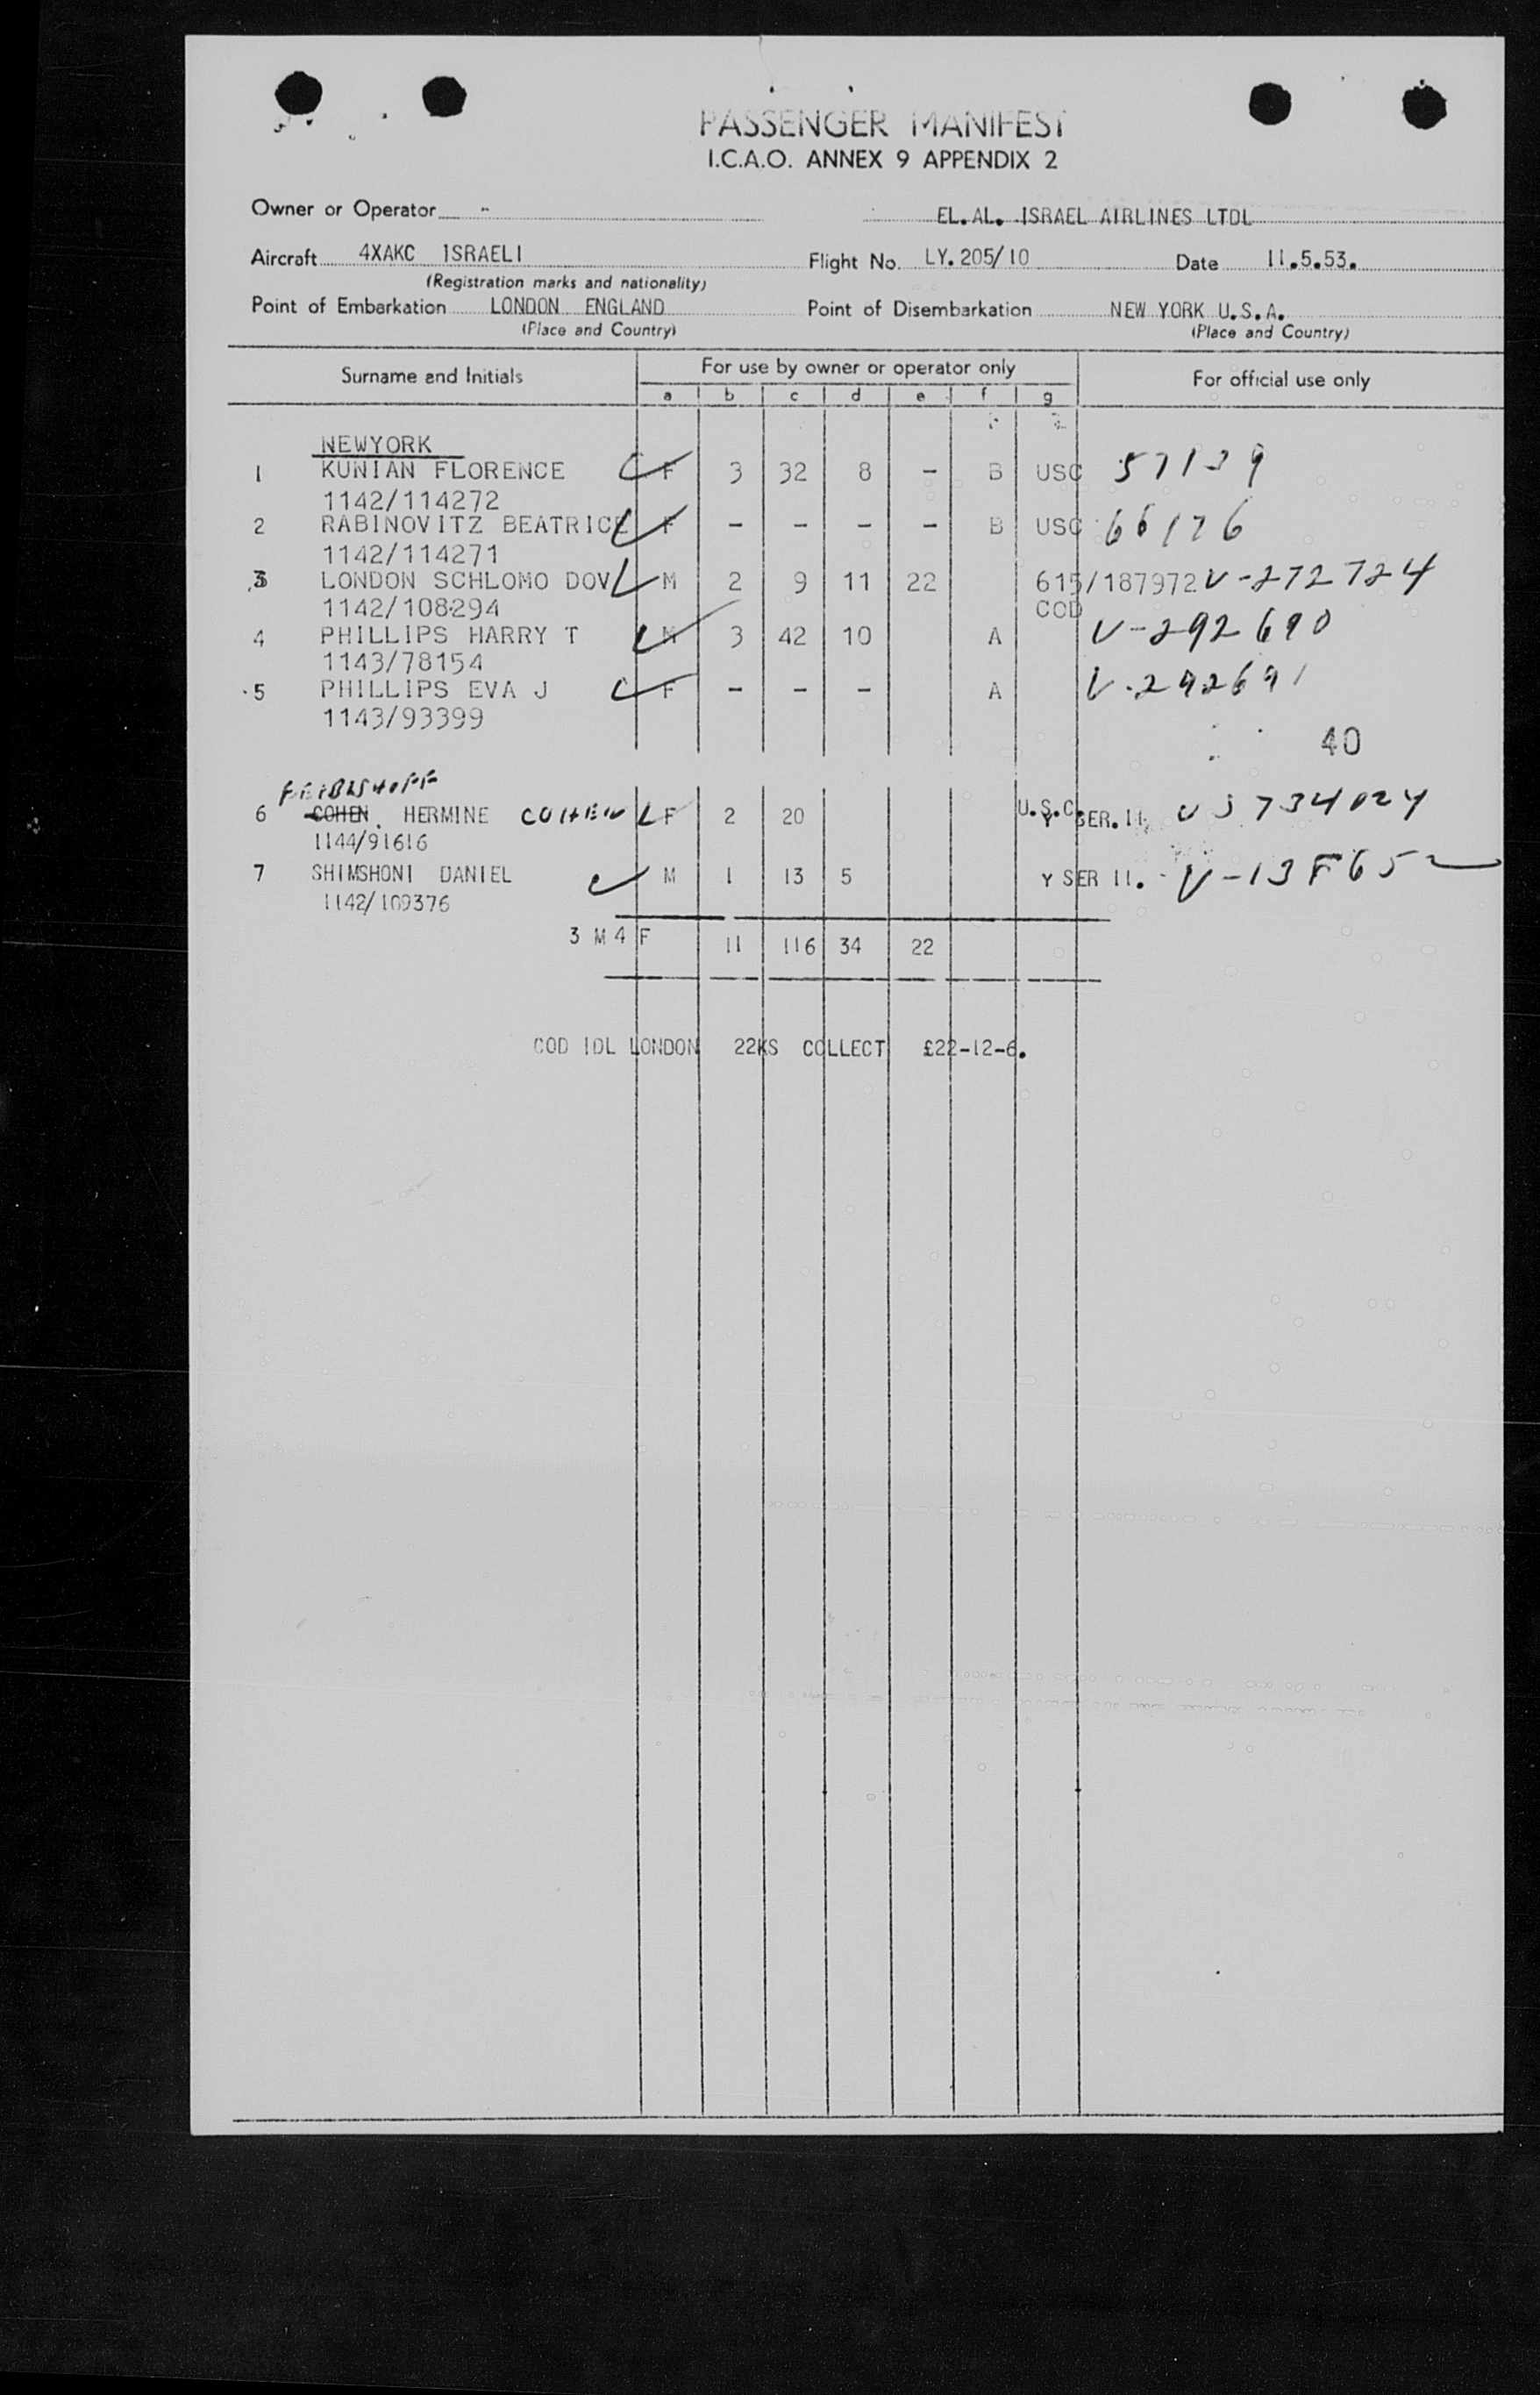 PASSENGER MANIFEST
I.C.A.O. ANNEX 9 APPENDIX 2
Owner or Operator EL.AL. ISRAEL AIRLINES LTDL
Aircraft 4XAKC ISRAELI Flight No. LY.205/10 Date 11.5.53.
(Registration marks and nationality)
Point of Embarkation LONDON ENGLAND Point of Disembarkation NEW YORK U.S.A.
(Place and Country) (Place and Country)
Surname and Initials For use by owner or operator only For official use only
a b c d e f g
NEWYORK
1 KUNIAN FLORENCE F 3 32 8 - B USC 57139
1142/114272
2 RABINOVITZ BEATRICE F - - - - B USC 66176
1142/114271
3 LONDON SCHLOMO DOV M 2 9 11 22 615/187972 V-272724
1142/108294 COD
4 PHILLIPS HARRY T M 3 42 10 A V-292690
1143/78154
5 PHILLIPS EVA J F - - - A V-292691
1143/93399
40
6 COHEN. HERMINE COHEN F 2 20 U.S.C. Y SER.11
1144/91616
7 SHIMSHONI DANIEL M 1 13 5 Y SER 11.
1142/109376
3 M 4 F 11 116 34 22
COD IDL LONDON 22KS COLLECT £22-12-6.